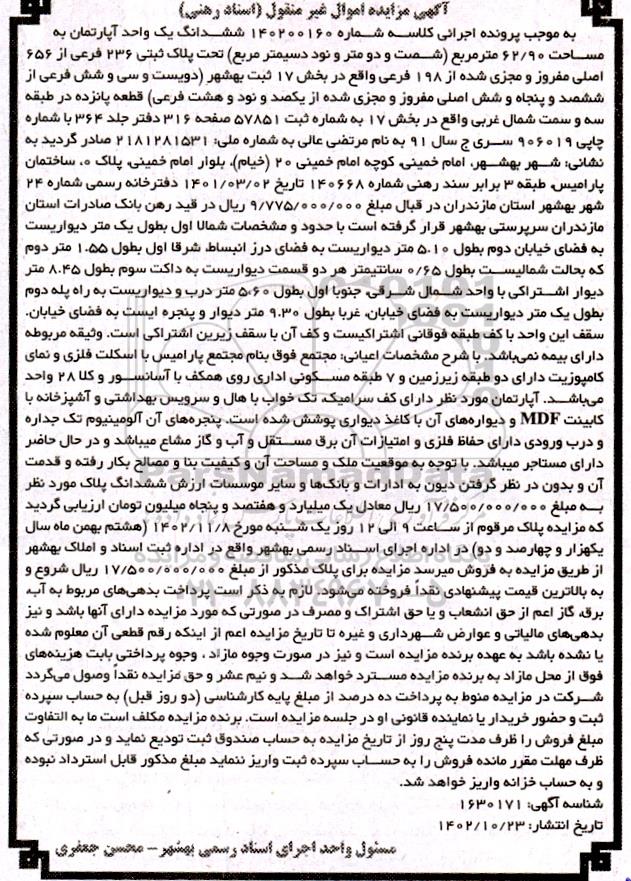 آگهی مزایده اموال غیر منقول (اسناد رهنی)
به موجب پرونده اجرائی کلاسه شماره ۱۴۰۲۰۰۱۶۰ ششدانگ یک واحد آپارتمان به
مساحت ۶۲/۹۰ مترمربع (شصت و دو متر و نود دسیمتر مربع) تحت پلاک ثبتی ۲۳۶ فرعی از ۶۵۶
اصلی مفروز و مجزی شده از ۱۹۸ فرعی واقع در بخش ۱۷ ثبت بهشهر (دویست و سی و شش فرعی از
ششصد و پنجاه و شش اصلی مفروز و مجزی شده از یکصد و نود و هشت فرعی) قطعه پانزده در طبقه
سه و سمت شمال غربی واقع در بخش ۱۷ به شماره ثبت ۵۷۸۵۱ صفحه ۳۱۶ دفتر جلد ۳۶۴ با شماره
چاپی ۹۰۶۰۱۹ سری ج سال ۹۱ به نام مرتضی عالی به شماره ملی: ۲۱۸۱۲۸۱۵۳۱ صادر گردید به
نشانی: شهر بهشهر، امام خمینی، کوچه امام خمینی ۲۰ (خیام)، بلوار امام خمینی، پلاک ۰، ساختمان
پارامیس، طبقه ۳ برابر سند رهنی شماره ۱۴۰۶۶۸ تاریخ ۱۴۰۱/۰۳/۰۲ دفترخانه رسمی شماره ۲۴
شهر بهشهر استان مازندران در قبال مبلغ ۹/۷۷۵/۰۰۰/۰۰۰ ریال در قید رهن بانک صادرات استان
مازندران سرپرستی بهشهر قرار گرفته است با حدود و مشخصات شمالا اول بطول یک متر دیواریست
به فضای خیابان دوم بطول ۵.۱۰ متر دیواریست به فضای درز انبساط، شرقا اول بطول ۱.۵۵ متر دوم
که بحالت شمالیست بطول ۰/۶۵ سانتیمتر هر دو قسمت دیواریست به داکت سوم بطول ۸.۴۵ متر
دیوار اشتراکی با واحد شمال شرقی، جنوبا اول بطول ۵.۶۰ متر درب و دیواریست به راه پله دوم
بطول یک متر دیواریست به فضای خیابان، غربا بطول ۹.۳۰ متر دیوار و پنجره ایست به فضای خیابان.
سقف این واحد با کف طبقه فوقانی اشتراکیست و کف آن با سقف زیرین اشتراکی است. وثیقه مربوطه
دارای بیمه نمی‌باشد. با شرح مشخصات اعیانی: مجتمع فوق بنام مجتمع پارامیس با اسکلت فلزی و نمای
کامپوزیت دارای دو طبقه زیرزمین و ۷ طبقه مسکونی اداری روی همکف با آسانسور و کلا ۲۸ واحد
می‌باشد. آپارتمان مورد نظر دارای کف سرامیک، تک خواب با هال و سرویس بهداشتی و آشپزخانه با
کابینت MDF و دیواره‌های آن با کاغذ دیواری پوشش شده است. پنجره‌های آن آلومینیوم تک جداره
و درب ورودی دارای حفاظ فلزی و امتیازات آن برق مستقل و آب و گاز مشاع میباشد و در حال حاضر
دارای مستاجر میباشد. با توجه به موقعیت ملک و مساحت آن و کیفیت بنا و مصالح بکار رفته و قدمت
آن و بدون در نظر گرفتن دیون به ادارات و بانک‌ها و سایر موسسات ارزش ششدانگ پلاک مورد نظر
به مبلغ ۱۷/۵۰۰/۰۰۰/۰۰۰ ریال معادل یک میلیارد و هفتصد و پنجاه میلیون تومان ارزیابی گردید
که مزایده پلاک مرقوم از ساعت ۹ الی ۱۲ روز یک شنبه مورخ ۱۴۰۲/۱۱/۸ (هشتم بهمن ماه سال
یکهزار و چهارصد و دو) در اداره اجرای اسناد رسمی بهشهر واقع در اداره ثبت اسناد و املاک بهشهر
از طریق مزایده به فروش میرسد مزایده برای پلاک مذکور از مبلغ ۱۷/۵۰۰/۰۰۰/۰۰۰ ریال شروع و
به بالاترین قیمت پیشنهادی نقداً فروخته می‌شود. لازم به ذکر است پرداخت بدهی‌های مربوط به آب،
برق، گاز اعم از حق انشعاب و یا حق اشتراک و مصرف در صورتی که مورد مزایده دارای آنها باشد و نیز
بدهی‌های مالیاتی و عوارض شهرداری و غیره تا تاریخ مزایده اعم از اینکه رقم قطعی آن معلوم شده
یا نشده باشد به عهده برنده مزایده است و نیز در صورت وجوه مازاد ، وجوه پرداختی بابت هزینه‌های
فوق از محل مازاد به برنده مزایده مسترد خواهد شد و نیم عشر و حق مزایده نقداً وصول می‌گردد
شرکت در مزایده منوط به پرداخت ده درصد از مبلغ پایه کارشناسی (دو روز قبل) به حساب سپرده
ثبت و حضور خریدار یا نماینده قانونی او در جلسه مزایده است. برنده مزایده مکلف است ما به التفاوت
مبلغ فروش را ظرف مدت پنج روز از تاریخ مزایده به حساب صندوق ثبت تودیع نماید و در صورتی که
ظرف مهلت مقرر مانده فروش را به حساب سپرده ثبت واریز ننماید مبلغ مذکور قابل استرداد نبوده
و به حساب خزانه واریز خواهد شد.
شناسه آگهی: ۱۶۳۰۱۷۱
تاریخ انتشار: ۱۴۰۲/۱۰/۲۳
مسئول واحد اجرای اسناد رسمی بهشهر - محسن جعفری